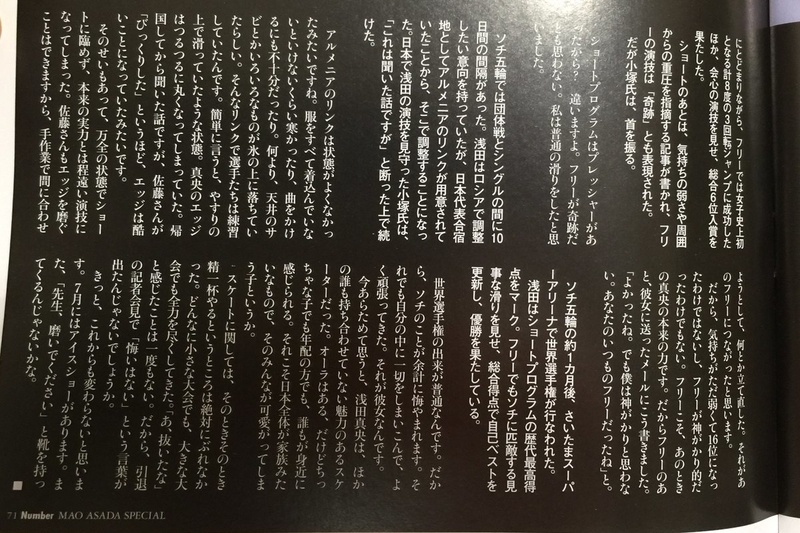 にとどまりながら、フリーでは女子史上初
となる計8度の3回転ジャンプに成功した
ほか、会心の演技を見せ、総合6位入賞を
果たした。
ショートのあとは、気持ちの弱さや周囲
からの重圧を指摘する記事が書かれ、フリ
ーの演技は「奇跡」とも表現された。
だが小塚氏は、首を振る。
ショートプログラムはプレッシャーがあ
ったから? 違いますよ。フリーが奇跡だ
とも思わない。私は普通の滑りをしたと思
いました。
ソチ五輪では団体戦とシングルの間に10
日間の間隔があった。浅田はロシアで調整
したい意向を持っていたが、日本代表合宿
地としてアルメニアのリンクが用意されて
いたことから、そこで調整することになっ
た。日本で浅田の演技を見守った小塚氏は、
「これは聞いた話ですが」と断った上で続
けた。
アルメニアのリンクは状態がよくなかっ
たみたいですね。服をすべて着込んでいな
いといけないくらい寒かったり、曲をかけ
るにも不十分だったり。何より、天井のサ
ビとかいろいろなものが氷の上に落ちてい
たらしい。そんなリンクで選手たちは練習
していたんです。簡単に言うと、やすりの
上で滑っていたような状態。真央のエッジ
はつるつるに丸くなってしまっていた。帰
国してから聞いた話ですが、佐藤さんが
「びっくりした」というほど、エッジは酷
いことになっていたみたいです。
そのせいもあって、万全の状態でショー
トに臨めず、本来の実力とは程遠い演技に
なってしまった。佐藤さんもエッジを磨ぐ
ことはできますから、手作業で間に合わせ
ようとして、何とか立て直した。それがあ
のフリーにつながったと思います。
だから、気持ちがただ弱くて16位になっ
たわけではないし、フリーが神がかり的だ
ったわけでもない。フリーこそ、あのとき
の真央の本来の力です。だからフリーのあ
と、彼女に送ったメールにこう書きました。
「よかったね。でも僕は神がかりと思わな
い。あなたのいつものフリーだったね」と。
ソチ五輪の約1カ月後、さいたまスーパ
ーアリーナで世界選手権が行なわれた。
浅田はショートプログラムの歴代最高得
点をマーク。フリーでもソチに匹敵する見
事な滑りを見せ、総合得点で自己ベストを
更新し、優勝を果たしている。
世界選手権の出来が普通なんです。だか
ら、ソチのことが余計に悔やまれます。そ
れでも自分の中に一切をしまいこんで、よ
く頑張ってきた。それが彼女なんです。
今あらためて思うと、浅田真央は、ほか
の誰も持ち合わせていない魅力のあるスケ
ーターだった。オーラはある、だけどちっ
ちゃな子でも年配の方でも、誰もが身近に
感じられる。それこそ日本全体が家族みた
いなもので、そのみんなが可愛がってしま
う子というか。
スケートに関しては、そのときそのとき
精一杯やるというところは絶対にぶれなか
った。どんなに小さな大会でも、大きな大
会でも全力を尽くしてきた。「あ、抜いたな」
と感じたことは一度もない。だから、引退
の記者会見で「悔いはない」という言葉が
出たんじゃないでしょうか。
きっと、これからも変わらないと思いま
す。7月にはアイスショーがあります。ま
た、「先生、磨いでください」と靴を持っ
てくるんじゃないかな。
71 Number MAO ASADA SPECIAL